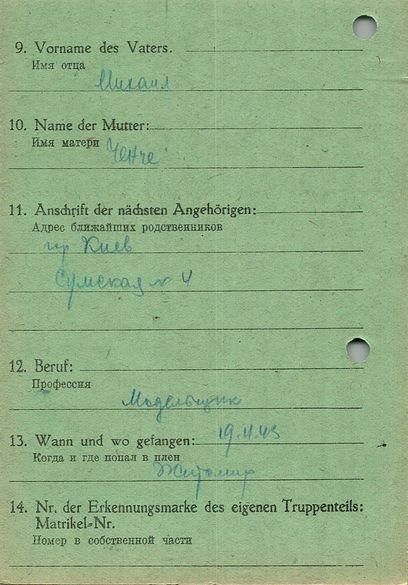 9. Vorname des Vaters.
Имя отца
Михаил
10. Name der Mutter:
Имя матери
11. Anschrift der nächsten Angehörigen:
Адрес ближайших родственников
гор Киев
Сумская № 4
12. Beruf:
Профессия
Модельщик
13. Wann und wo gefangen: 19.4.43
Когда и где попал в плен
Житомир
14. Nr. der Erkennungsmarke des eigenen Truppenteils:
Matrikel-Nr.
Номер в собственной части